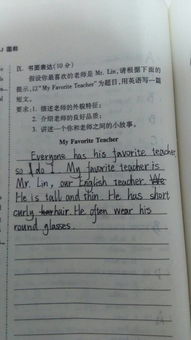 Ⅸ. 书面表达(10分)
假设你最喜欢的老师是 Mr. Lin,请根据下面的
提示,以"My Favorite Teacher"为题,用英语写一篇
短文。
要求:1. 描述老师的外貌特征;
2. 介绍老师的良好品质;
3. 讲述一个你和老师之间的小故事。
My Favorite Teacher
Everyone has his favorite teacher
so I do I. My favorite teacher is
Mr. Lin, our English teacher.
He is tall and thin. He has short
curly hair. He often wear his
round glasses.